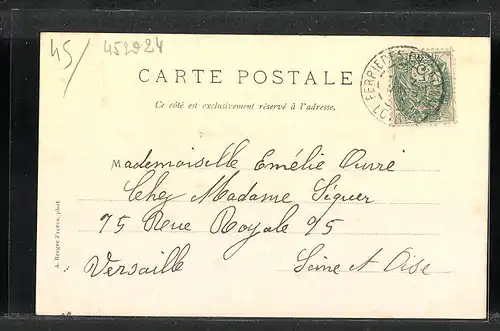 45/ 452984
CARTE POSTALE
Ce côté est exclusivement réservé à l'adresse.
Mademoiselle Emélie Ouvré
Chez Madame Séguer
75 Rue Royale 75
Versaille Seine et Oise
A. Berger Frères, phot